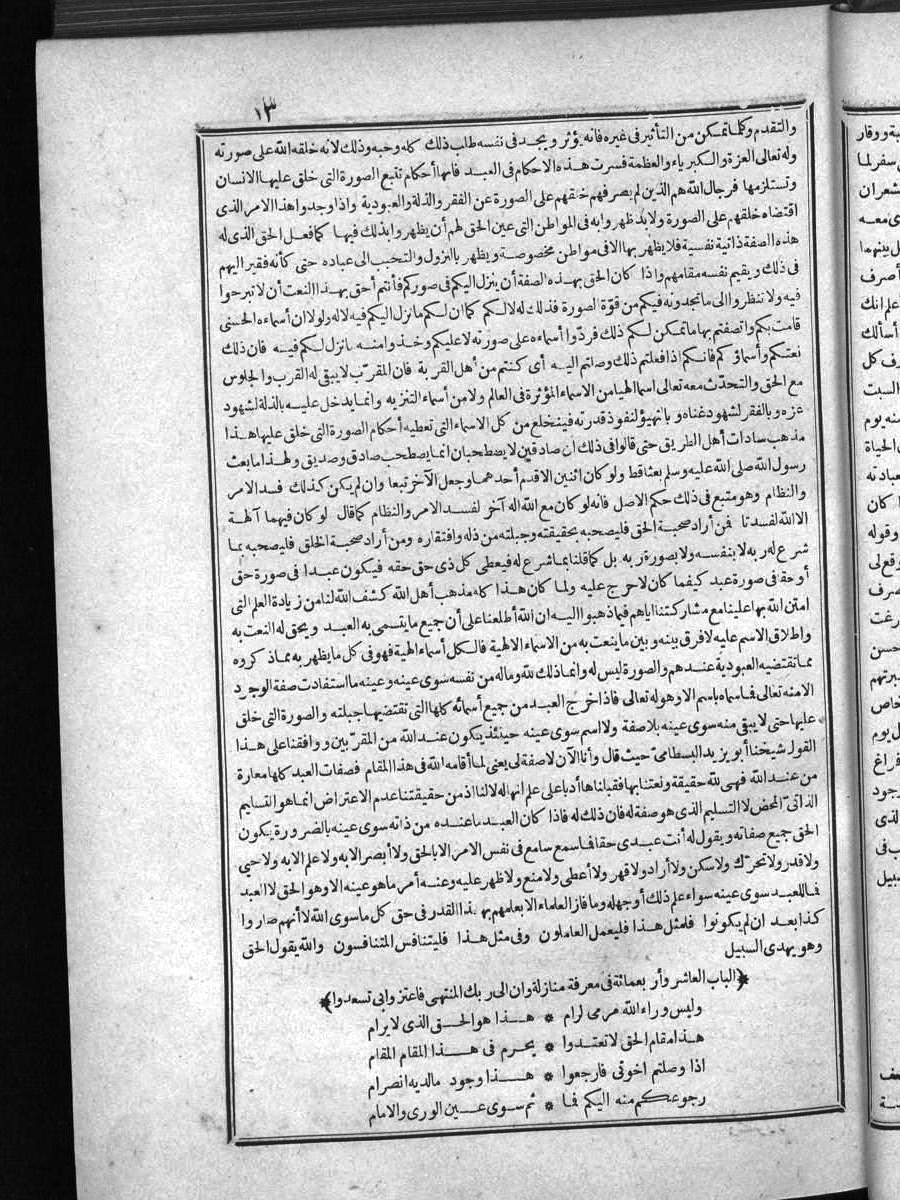 ١٣
والتقدم وكلما تمكن من التأثير فى غيره فانه يؤثر ويجد فى نفسه طلب ذلك كله وحبه وذلك لانه خلقه الله على صورته
وله تعالى العزة والكبرياء والعظمة فسرت هذه الاحكام فى العبد فانها أحكام تتبع الصورة التى خلق عليها الانسان
وتستلزمها فرجال الله هم الذين لم يصرفهم خلقهم على الصورة عن الفقر والذلة والعبودية واذا وجدوا هذا الامر الذى
اقتضاه خلقهم على الصورة ولابد ظهروا به فى المواطن التى عين الحق لهم أن يظهروا بذلك فيها كما فعل الحق الذى له
هذه الصفة ذاتية نفسية فلا يظهر بها الا فى مواطن مخصوصة ويظهر بالنزول والتحبب الى عباده حتى كأنه فقير اليهم
فى ذلك ويقيم نفسه مقامهم واذا كان الحق بهذه الصفة أن ينزل اليكم فى صوركم فأنتم أحق بهذا النعت أن لا تبرحوا
فيه ولا تنظروا الى ما تجدونه فيكم من قوة الصورة فذلك له لا لكم كما ان لكم ما نزل اليكم فيه لا له ولولا ان أسماءه الحسنى
قامت بكم واتصفتم بها ما تمكن لكم ذلك فردوا أسماءه على صورته لا عليكم وخذوا منه ما نزل لكم فيه فان ذلك
نعتكم وأسماؤكم فانكم اذا فعلتم ذلك وصلتم اليه أى كنتم من أهل القربة فان المقرب لا يبقى له القرب والجلوس
مع الحق والتحدث معه تعالى اسما الهيا من الاسماء المؤثرة فى العالم ولا من أسماء التنزيه وانما يدخل عليه بالذلة لشهود
عزه وبالفقر لشهود غناه وبالتهيؤ لنفوذ قدرته فينخلع من كل الاسماء التى تعطيه أحكام الصورة التى خلق عليها هذا
مذهب سادات أهل الطريق حتى قالوا فى ذلك ان صادقين لا يصطحبان انما يصطحب صادق وصديق ولهذا ما بعث
رسول الله صلى الله عليه وسلم بعثا قط ولو كان اثنين الا قدم أحدهما وجعل الآخر تبعا وان لم يكن كذلك فسد الامر
والنظام وهو متبع فى ذلك حكم الاصل فانه لو كان مع الله اله آخر لفسد الامر والنظام كما قال لو كان فيهما آلهة
الا الله لفسدتا فمن أراد صحبة الحق فليصحبه بحقيقته وجبلته من ذله وافتقاره ومن أراد صحبة الخلق فليصحبه بما
شرع له ربه لا بنفسه ولا بصورة ربه بل كما قلنا بما شرع له فيعطى كل ذى حق حقه فيكون عبدا فى صورة حق
أو حقا فى صورة عبد كيفما كان لا حرج عليه ولما كان هذا كله مذهب أهل الله كشف الله لنا من زيادة العلم التى
امتن الله بها علينا مع مشاركتنا اياهم فيما ذهبوا اليه ان الله أطلعنا على أن جميع ما يتسمى به العبد ويحق له النعت به
واطلاق الاسم عليه لا فرق بينه وبين ما ينعت به من الاسماء الالهية فالكل أسماء الهية فهو فى كل ما يظهر به مما ذكروه
مما تقتضيه العبودية عندهم والصورة ليس له وانما ذلك لله وماله من نفسه سوى عينه وعينه ما استفادت صفة الوجود
الا منه تعالى فما سماه باسم الا وهو له تعالى فاذا خرج العبد من جميع أسمائه كلها التى تقتضيها جبلته والصورة التى خلق
عليها حتى لا يبقى منه سوى عينه بلا صفة ولا اسم سوى عينه حينئذ يكون عند الله من المقربين ووافقنا على هذا
القول شيخنا أبو يزيد البسطامى حيث قال وأنا الآن لا صفة لى يعنى لما أقامه الله فى هذا المقام فصفات العبد كلها معارة
من عند الله فهى لله حقيقة ونعتنا بها فقبلناها أدبا على علم انها له لا لنا اذ من حقيقتنا عدم الاعتراض انما هو التسليم
الذاتى المحض لا التسليم الذى هو صفة له فان ذلك له فاذا كان العبد ما عنده من ذاته سوى عينه بالضرورة يكون
الحق جميع صفاته ويقول له أنت عبدى حقا فما سمع سامع فى نفس الامر الا بالحق ولا أبصر الا به ولا علم الا به ولا حيى
ولا قدر ولا تحرك ولا سكن ولا أراد ولا قهر ولا أعطى ولا منع ولا ظهر عليه وعنه أمر ما هو عينه الا وهو الحق لا العبد
فما للعبد سوى عينه سواء علم ذلك أو جهله وما فاز العلماء الا بعلمهم بهذا القدر فى حق كل ما سوى الله لا أنهم صاروا
كذا بعد ان لم يكونوا فلمثل هذا فليعمل العاملون وفى مثل هذا فليتنافس المتنافسون والله يقول الحق
وهو يهدى السبيل
﴿الباب العاشر وأربعمائة فى معرفة منازلة وان الى ربك المنتهى فاعتزوا بى تسعدوا﴾
وليس وراء الله مرمى لرام * هذا هو الحق الذى لا يرام
هذا مقام الحق لا تعتدوا * يحرم فى هذا المقام المقام
اذا وصلتم اخوتى فارجعوا * هذا وجود ما لديه انصرام
رجوعكم منه اليكم فما * ثم سوى عين الورى والامام